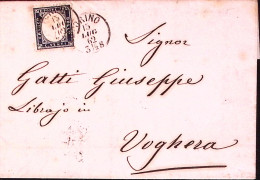 TORINO
15
LUG
62
3½S
Signor
Gatti Giuseppe
Librajo in
Voghera